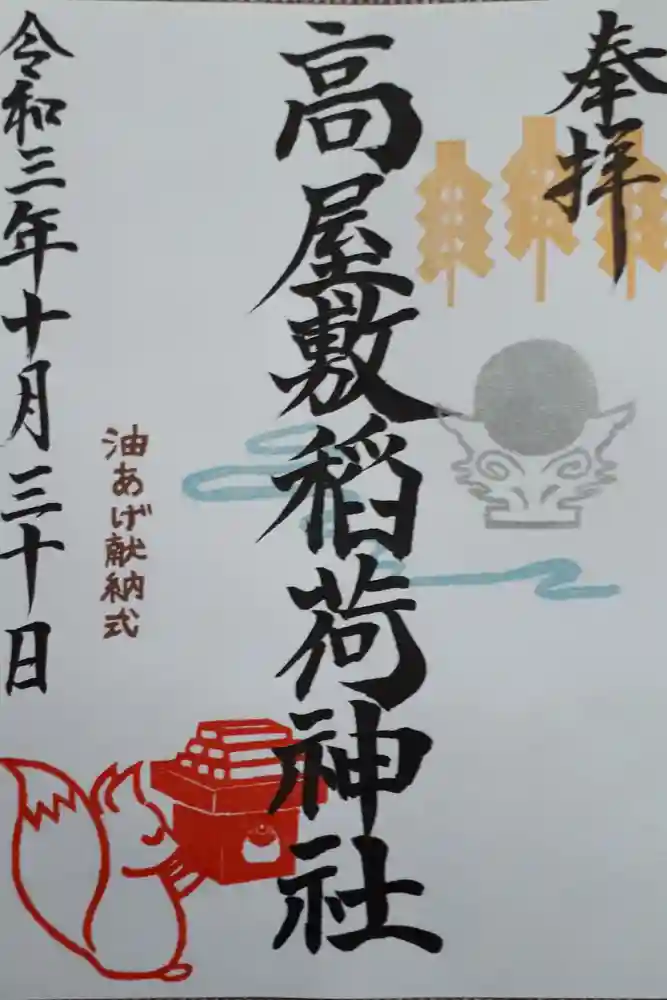 奉拝
高屋敷稲荷神社
油あげ献納式
令和三年十月三十日